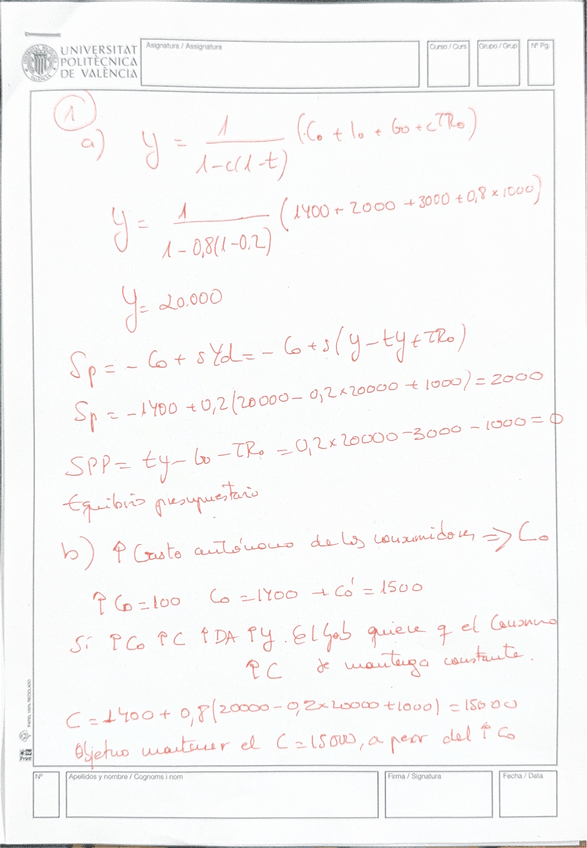 UNIVERSITAT
POLITÈCNICA
DE VALÈNCIA
Asignatura / Assignatura
Curso / Curs
Grupo / Grup
Nº Pg.
1
a) y = 1 / (1-c(1-t)) (Co + Io + Go + cTRo)
y = 1 / (1-0,8(1-0,2)) (1400 + 2000 + 3000 + 0,8 x 1000)
y = 20.000
Sp = -Co + sYd = -Co + s(y - ty + TRo)
Sp = -1400 + 0,2(20000 - 0,2x20000 + 1000) = 2000
SPP = ty - Go - TRo = 0,2x20000 - 3000 - 1000 = 0
Equilibrio presupuestario
b) ↑ Gasto autónomo de los consumidores => Co
↑Co = 100 Co = 1400 + Co' = 1500
Si ↑Co ↑C ↑DA ↑Y. El Gob quiere q el Consumo
↑C se mantenga constante.
C = 1400 + 0,8(20000 - 0,2x20000 + 1000) = 15000
Objetivo mantener el C = 15000, a pesar del ↑Co
Nº
Apellidos y nombre / Cognoms i nom
Firma / Signatura
Fecha / Data